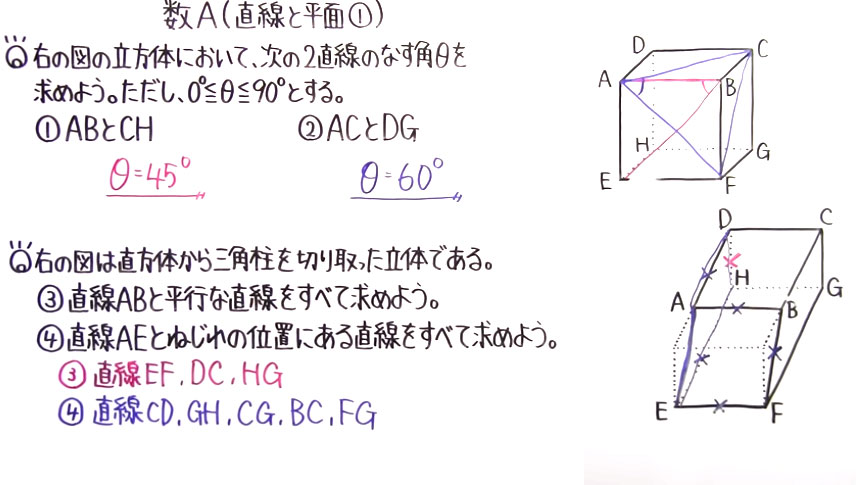 数A(直線と平面①)
右の図の立方体において、次の2直線のなす角θを
求めよう。ただし、0°≦θ≦90°とする。
①ABとCH ②ACとDG
θ=45° θ=60°
D C
A B
H G
E F
右の図は直方体から三角柱を切り取った立体である。
③直線ABと平行な直線をすべて求めよう。
④直線AEとねじれの位置にある直線をすべて求めよう。
③直線EF,DC,HG
④直線CD,GH,CG,BC,FG
D C
H G
A B
E F